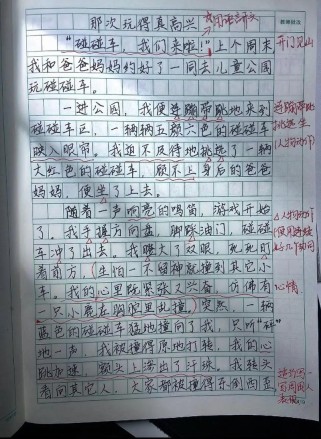 那次玩得真高兴
“碰碰车，我们来啦！”上个周末
我和爸爸妈妈约好了一同去儿童公园
玩碰碰车。
一进公园，我便连蹦带跳地来到
碰碰车区，一辆辆五颜六色的碰碰车
映入眼帘。我迫不及待地挑选了一辆
大红色的碰碰车，顾不上身后的爸爸
妈妈，便坐了上去。
随着一声响亮的鸣笛，游戏开始
了。我手握方向盘，脚踩油门，碰碰
车冲了出去。我瞪大了双眼，死死盯
着前方，生怕一不留神就撞到其它小
车。我的心里既紧张又兴奋，仿佛有
一只小鹿在胸腔里乱撞。突然，一辆
蓝色的碰碰车猛地撞向了我，只听“砰”
地一声，我被撞得原地打转，我的心
跳加速，额头上渗出了汗珠。我转头
看向其它人，大家都被撞得东倒西歪
开门见山
连蹦带跳
挑选 坐
（人物动作）
人物动作
心情